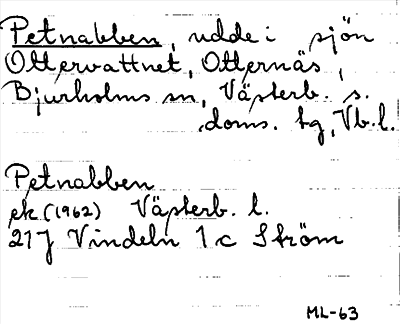 Petnabben, udde i sjön
Ottervattnet, Otternäs,
Bjurholms sn, Västerb. s.
doms. tg, Vb.l.
Petnabben
ek (1962) Västerb. l.
21J Vindeln 1c Ström
ML-63